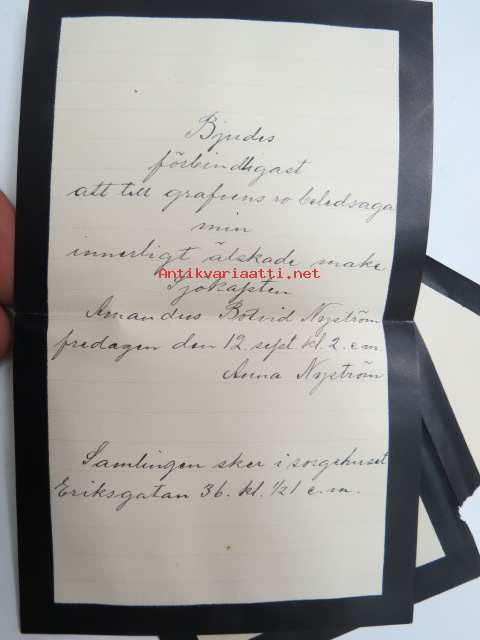 Bjudes
förbindligast
att till grafvens ro beledsaga
min
innerligt älskade make
Antikvariaatti.net
Sjökapten
Amandus Botvid Nyström
fredagen den 12 sept. kl. 2. e.m.
Anna Nyström
Samlingen sker i sorgehuset
Eriksgatan 36. kl. 1/21 e.m.